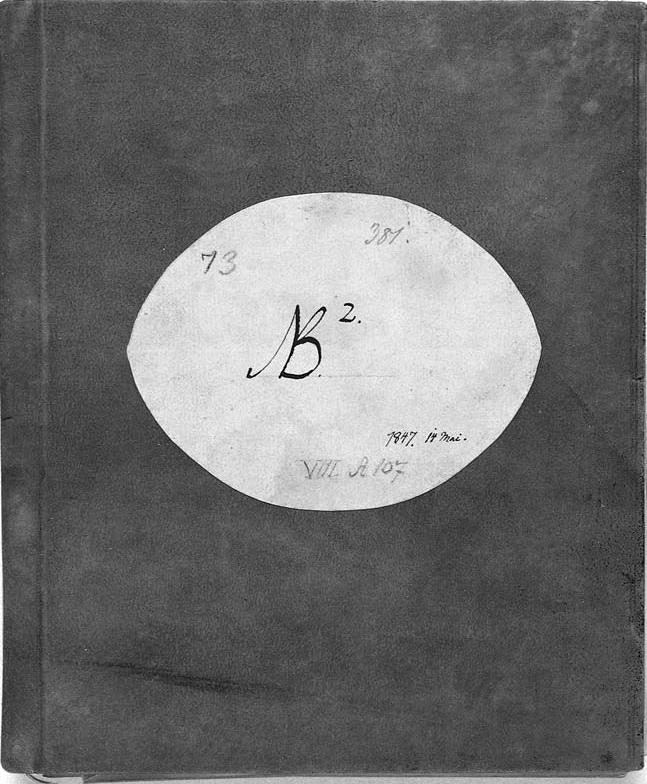 73
381.
NB 2.
1847. 14 Mai.
VIII A 107